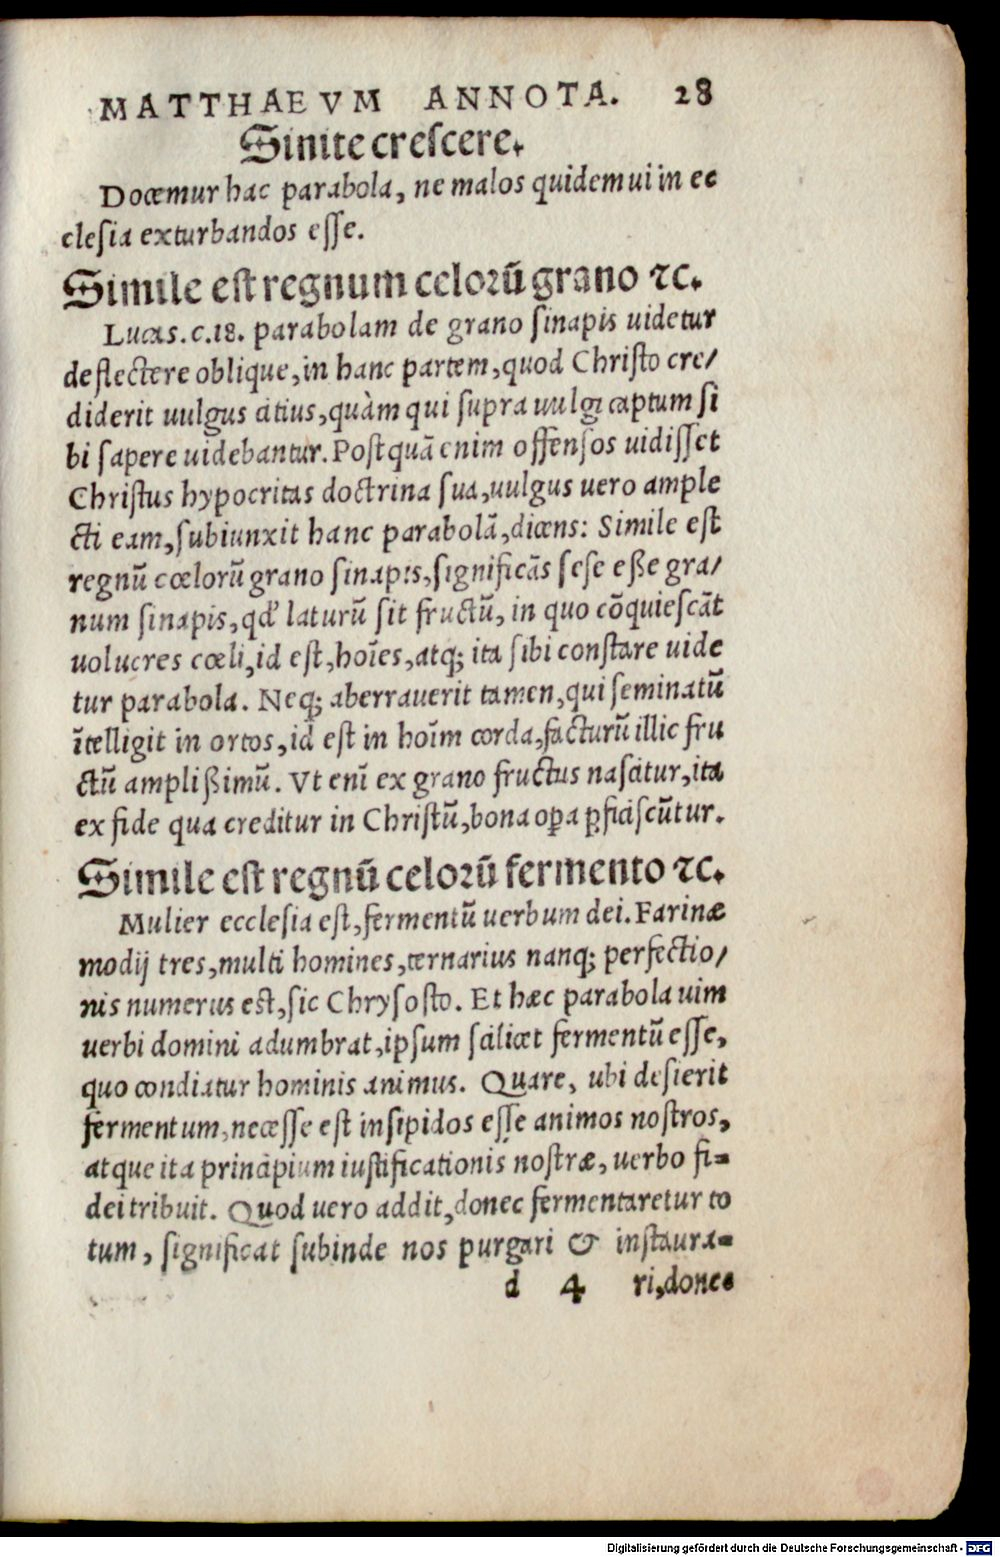 MATTHAEVM ANNOTA. 28
Sinite crescere.
Docemur hac parabola, ne malos quidem ui in ec
clesia exturbandos esse.
Simile est regnum celorū grano ⁊c.
Lucas.c.18. parabolam de grano sinapis uidetur
deflectere oblique, in hanc partem, quod Christo cre/
diderit uulgus citius, quàm qui supra uulgi captum si
bi sapere uidebantur. Postquā enim offensos uidisset
Christus hypocritas doctrina sua, uulgus uero ample
cti eam, subiunxit hanc parabolā, dicens: Simile est
regnū cœlorū grano sinapis, significās sese eße gra/
num sinapis, qd' laturū sit fructū, in quo cōquiescāt
uolucres cœli, id est, hoīes, atq; ita sibi constare uide
tur parabola. Neq; aberrauerit tamen, qui seminatū
ītelligit in ortos, id est in hoīm corda, facturū illic fru
ctū amplißimū. Vt enī ex grano fructus nascitur, ita
ex fide qua creditur in Christū, bona oꝑa ꝓficiscūtur.
Simile est regnū celorū fermento ⁊c.
Mulier ecclesia est, fermentū uerbum dei. Farinæ
modij tres, multi homines, ternarius nanq; perfectio/
nis numerus est, sic Chrysosto. Et hæc parabola uim
uerbi domini adumbrat, ipsum scilicet fermentū esse,
quo condiatur hominis animus. Quare, ubi desierit
fermentum, necesse est insipidos esse animos nostros,
atque ita principium iustificationis nostræ, uerbo fi=
dei tribuit. Quod uero addit, donec fermentaretur to
tum, significat subinde nos purgari & instaura=
d 4 ri, donec
Digitalisierung gefördert durch die Deutsche Forschungsgemeinschaft - DFG